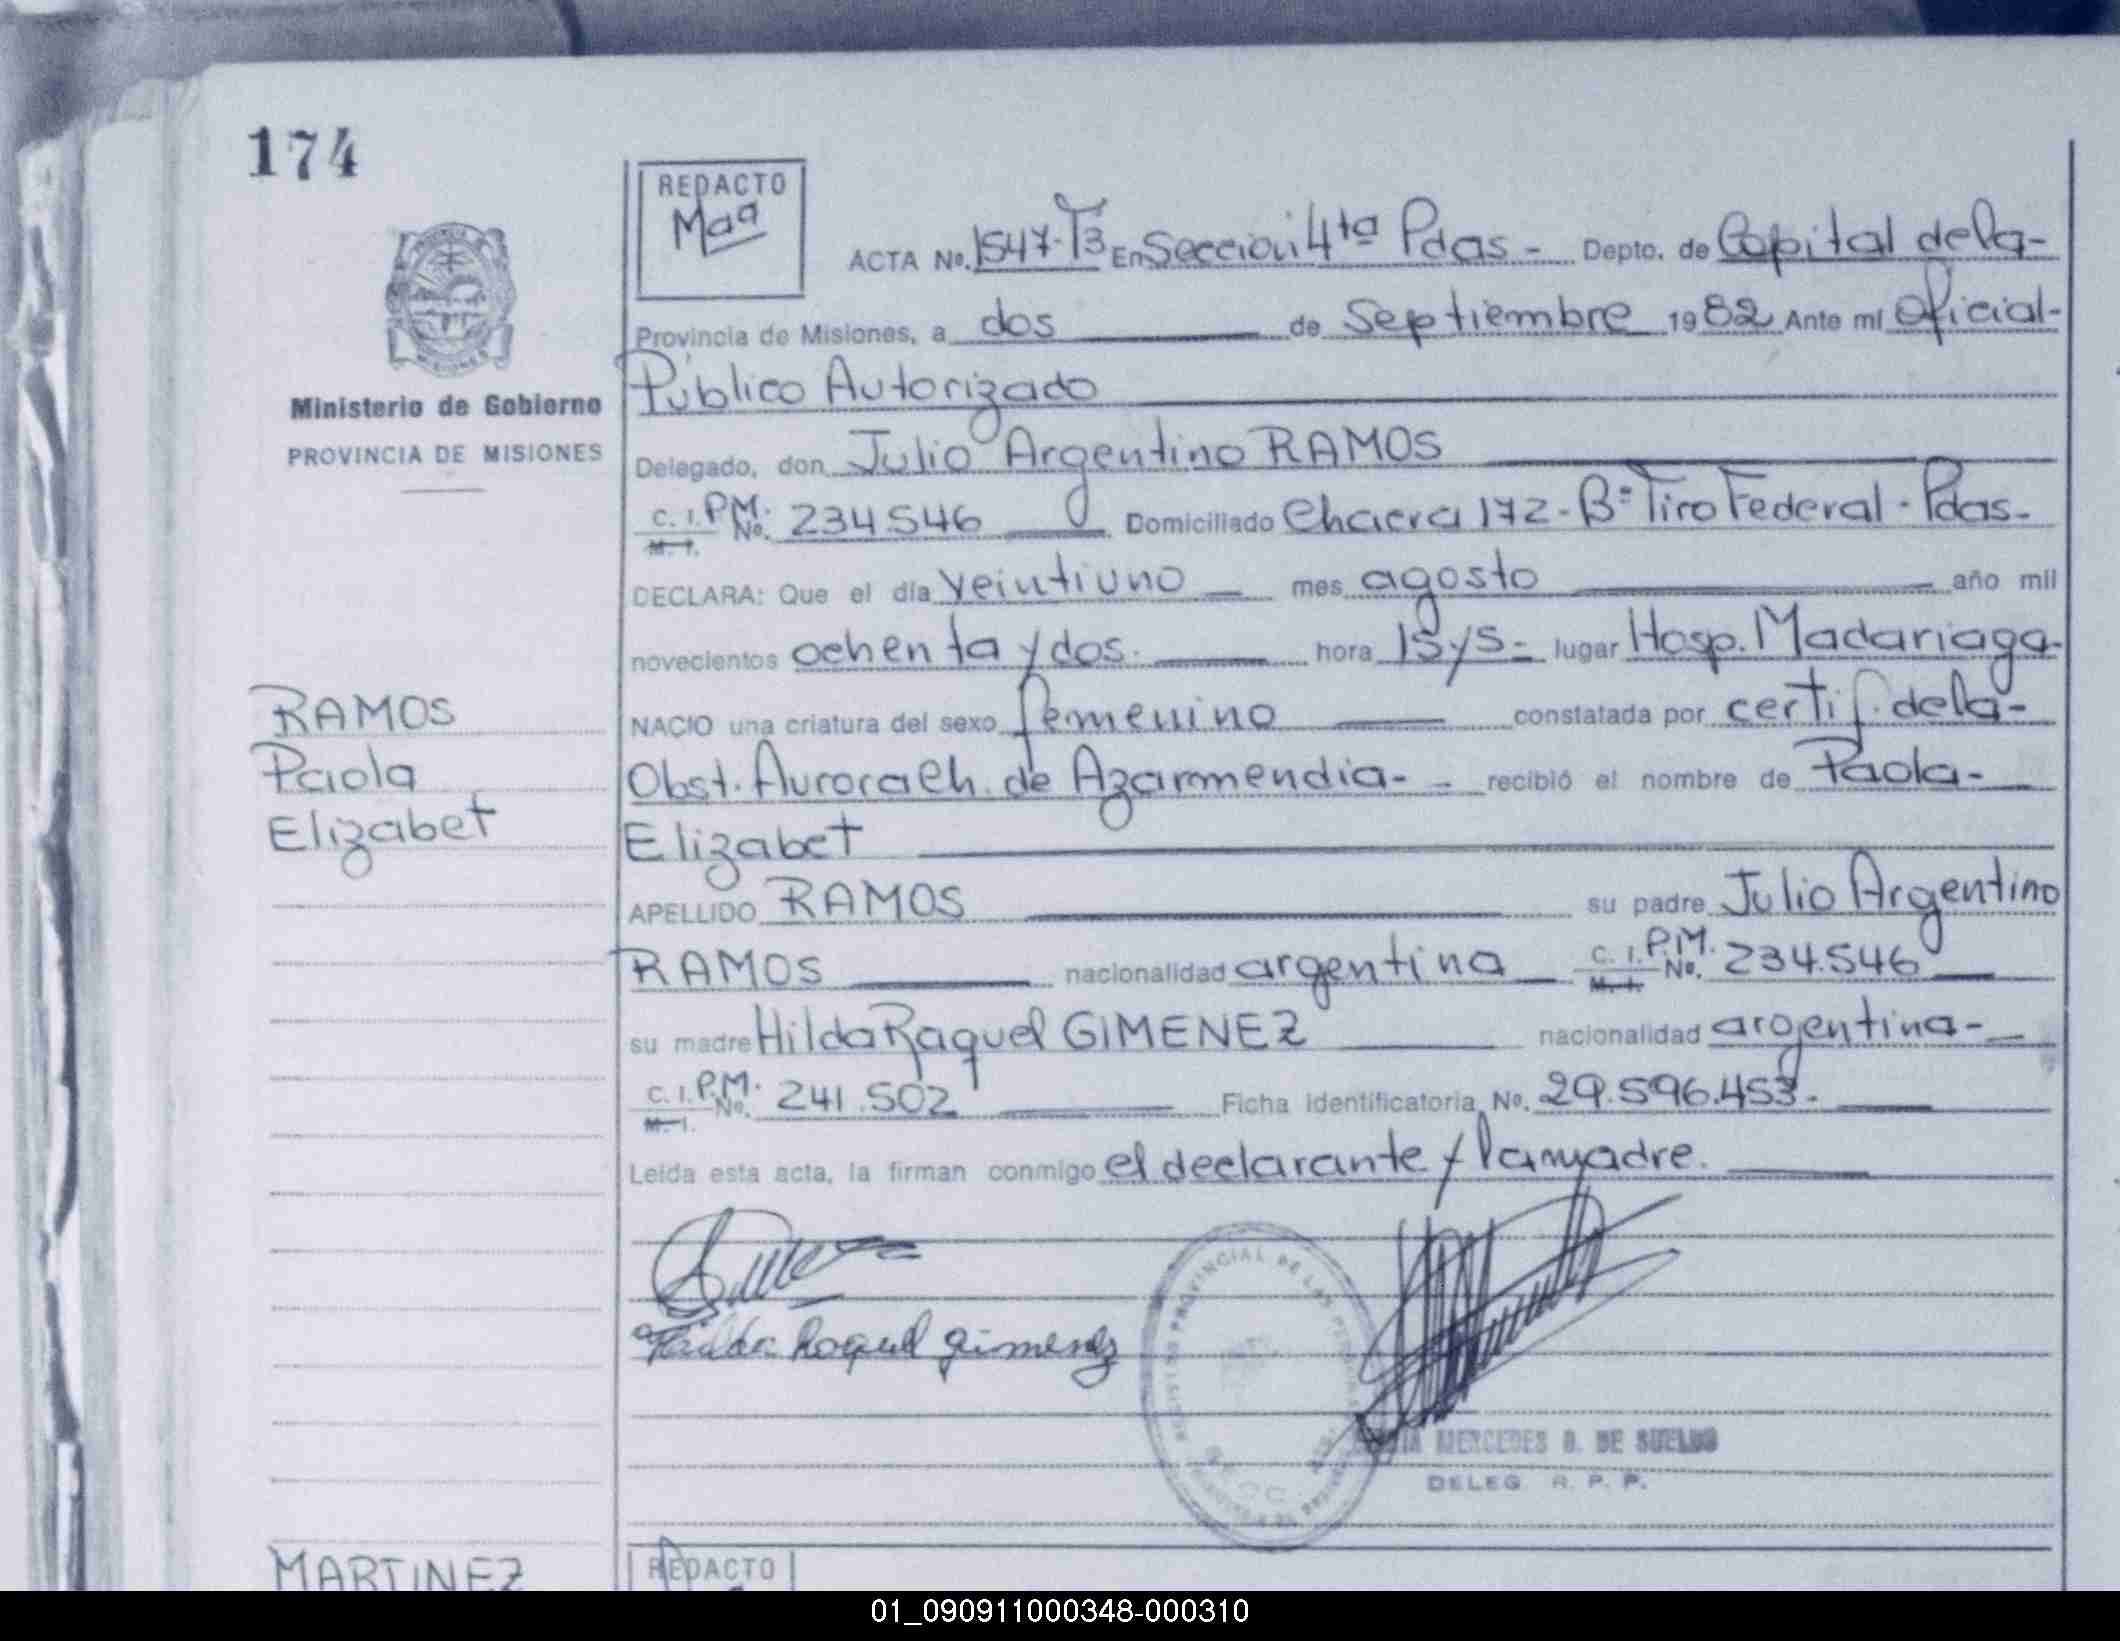 174
REDACTO
Maa
ACTA No. 1547-T3 En Sección 4ta Pdas - Depto. de Capital de la-
Provincia de Misiones, a dos de Septiembre 1982 Ante mi Oficial-
Ministerio de Gobierno
PROVINCIA DE MISIONES
Público Autorizado
Delegado, don Julio Argentino RAMOS
C. I. P.M. M. I. No. 234.546 Domiciliado Chacra 172 - Bº Tiro Federal - Pdas-
DECLARA: Que el día veintiuno mes agosto año mil
novecientos ochenta y dos. hora 15 y 5 - lugar Hosp. Madariaga-
RAMOS
Paola
Elizabet
NACIO una criatura del sexo femenino constatada por certif. de la-
Obst. Aurora Ch. de Azarmendia- - recibió el nombre de Paola-
Elizabet
APELLIDO RAMOS su padre Julio Argentino
RAMOS nacionalidad argentina C. I. P.M. M. I. No. 234.546
su madre Hilda Raquel GIMENEZ nacionalidad argentina-
C. I. P.M. M. I. No. 241.502 Ficha identificatoria No. 29.596.453-
Leída esta acta, la firman conmigo el declarante y la madre.
Hilda Raquel Gimenez
REGISTRO PROVINCIAL DE LAS PERSONAS
MERCEDES B. DE SUELDO
DELEG. R. P. P.
MARTINEZ
REDACTO
01_090911000348-000310